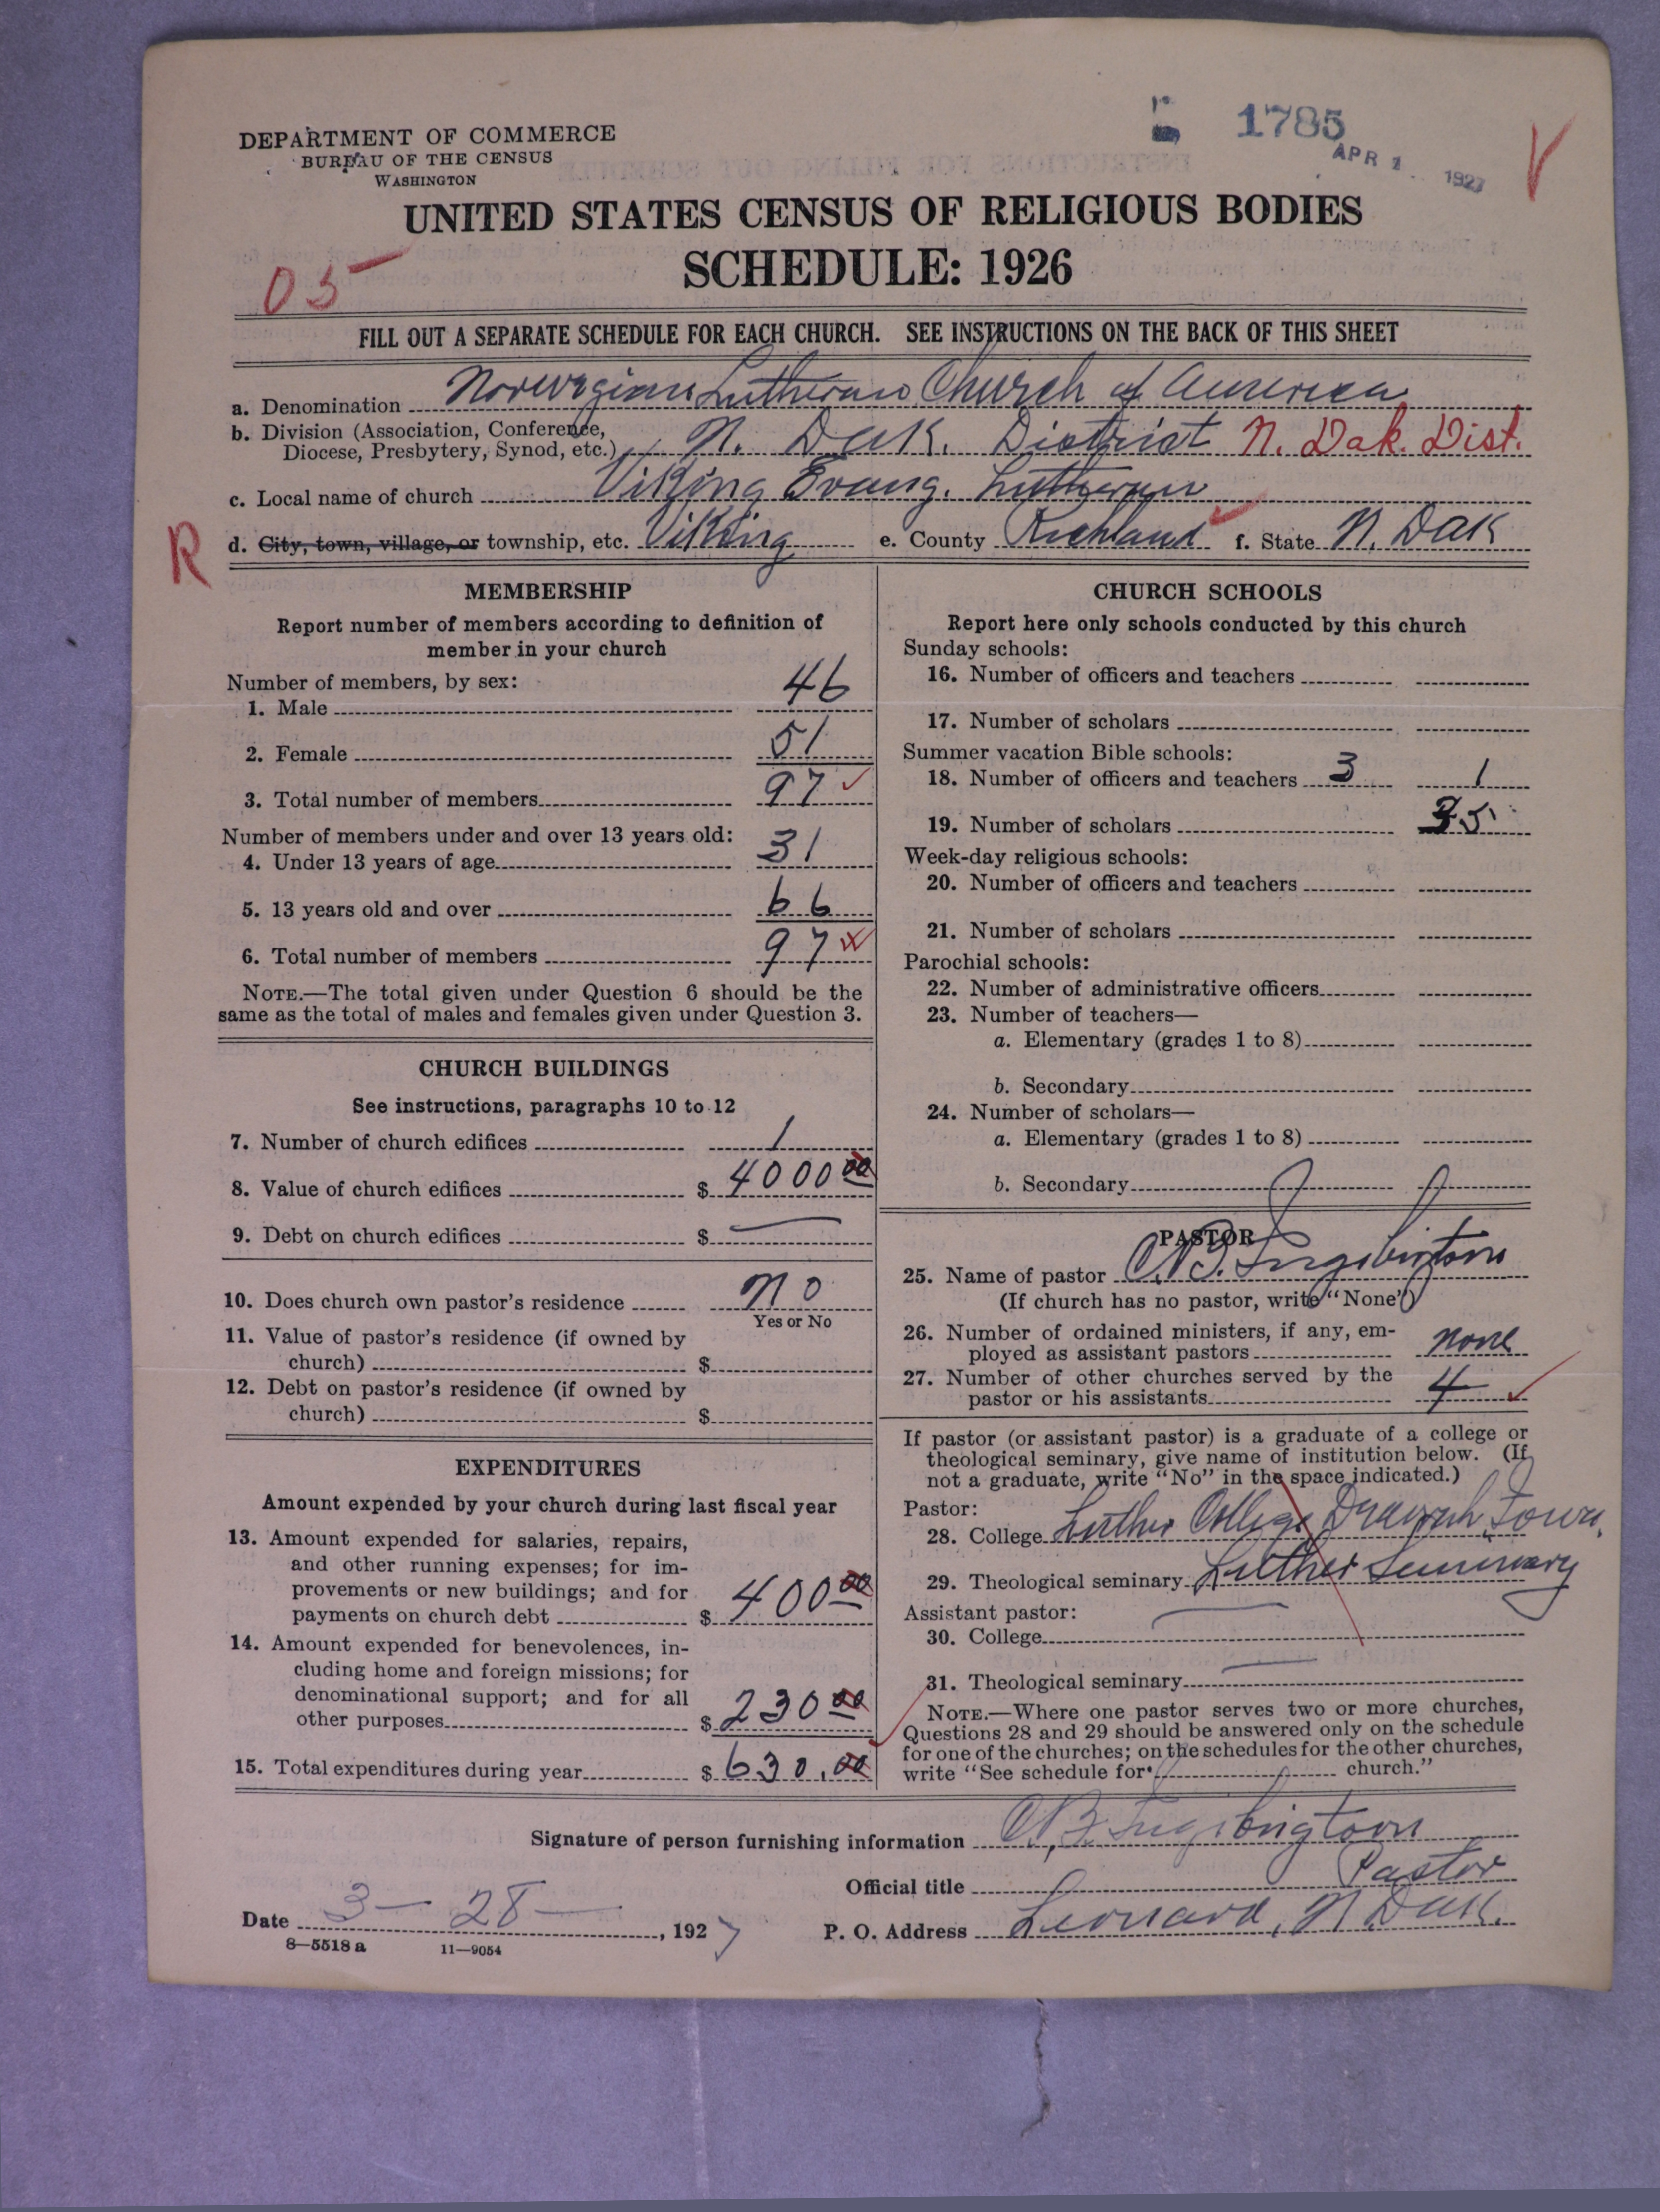 1785
APR 1 1927
DEPARTMENT OF COMMERCE
BUREAU OF THE CENSUS
WASHINGTON
UNITED STATES CENSUS OF RELIGIOUS BODIES
SCHEDULE: 1926
05
FILL OUT A SEPARATE SCHEDULE FOR EACH CHURCH. SEE INSTRUCTIONS ON THE BACK OF THIS SHEET
a. Denomination Norwegian Lutheran Church of America
b. Division (Association, Conference,
Diocese, Presbytery, Synod, etc.) N. Dak. District N. Dak. Dist.
c. Local name of church Viking Evang. Lutheran
R
d. City, town, village, or township, etc. Viking e. County Richland f. State N. Dak
MEMBERSHIP
Report number of members according to definition of
member in your church
Number of members, by sex:
1. Male 46
2. Female 51
3. Total number of members 97
Number of members under and over 13 years old:
4. Under 13 years of age 31
5. 13 years old and over 66
6. Total number of members 97
NOTE.—The total given under Question 6 should be the
same as the total of males and females given under Question 3.
CHURCH BUILDINGS
See instructions, paragraphs 10 to 12
7. Number of church edifices 1
8. Value of church edifices $ 4000 00
9. Debt on church edifices $ —
10. Does church own pastor's residence no
Yes or No
11. Value of pastor's residence (if owned by
church) $
12. Debt on pastor's residence (if owned by
church) $
EXPENDITURES
Amount expended by your church during last fiscal year
13. Amount expended for salaries, repairs,
and other running expenses; for im-
provements or new buildings; and for
payments on church debt $ 400 00
14. Amount expended for benevolences, in-
cluding home and foreign missions; for
denominational support; and for all
other purposes $ 230 00
15. Total expenditures during year $ 630.00
CHURCH SCHOOLS
Report here only schools conducted by this church
Sunday schools:
16. Number of officers and teachers
17. Number of scholars
Summer vacation Bible schools:
18. Number of officers and teachers 3 1
19. Number of scholars 35
Week-day religious schools:
20. Number of officers and teachers
21. Number of scholars
Parochial schools:
22. Number of administrative officers
23. Number of teachers—
a. Elementary (grades 1 to 8)
b. Secondary
24. Number of scholars—
a. Elementary (grades 1 to 8)
b. Secondary
PASTOR
25. Name of pastor
(If church has no pastor, write "None")
26. Number of ordained ministers, if any, em-
ployed as assistant pastors none
27. Number of other churches served by the
pastor or his assistants 4
If pastor (or assistant pastor) is a graduate of a college or
theological seminary, give name of institution below. (If
not a graduate, write "No" in the space indicated.)
Pastor:
28. College Luther College Decorah, Iowa.
29. Theological seminary Luther Seminary
Assistant pastor:
30. College —
31. Theological seminary —
NOTE.—Where one pastor serves two or more churches,
Questions 28 and 29 should be answered only on the schedule
for one of the churches; on the schedules for the other churches,
write "See schedule for church."
Signature of person furnishing information
Official title Pastor
Date 3-28-, 1927 P. O. Address Leonard, N. Dak.
8—5518 a 11—9054